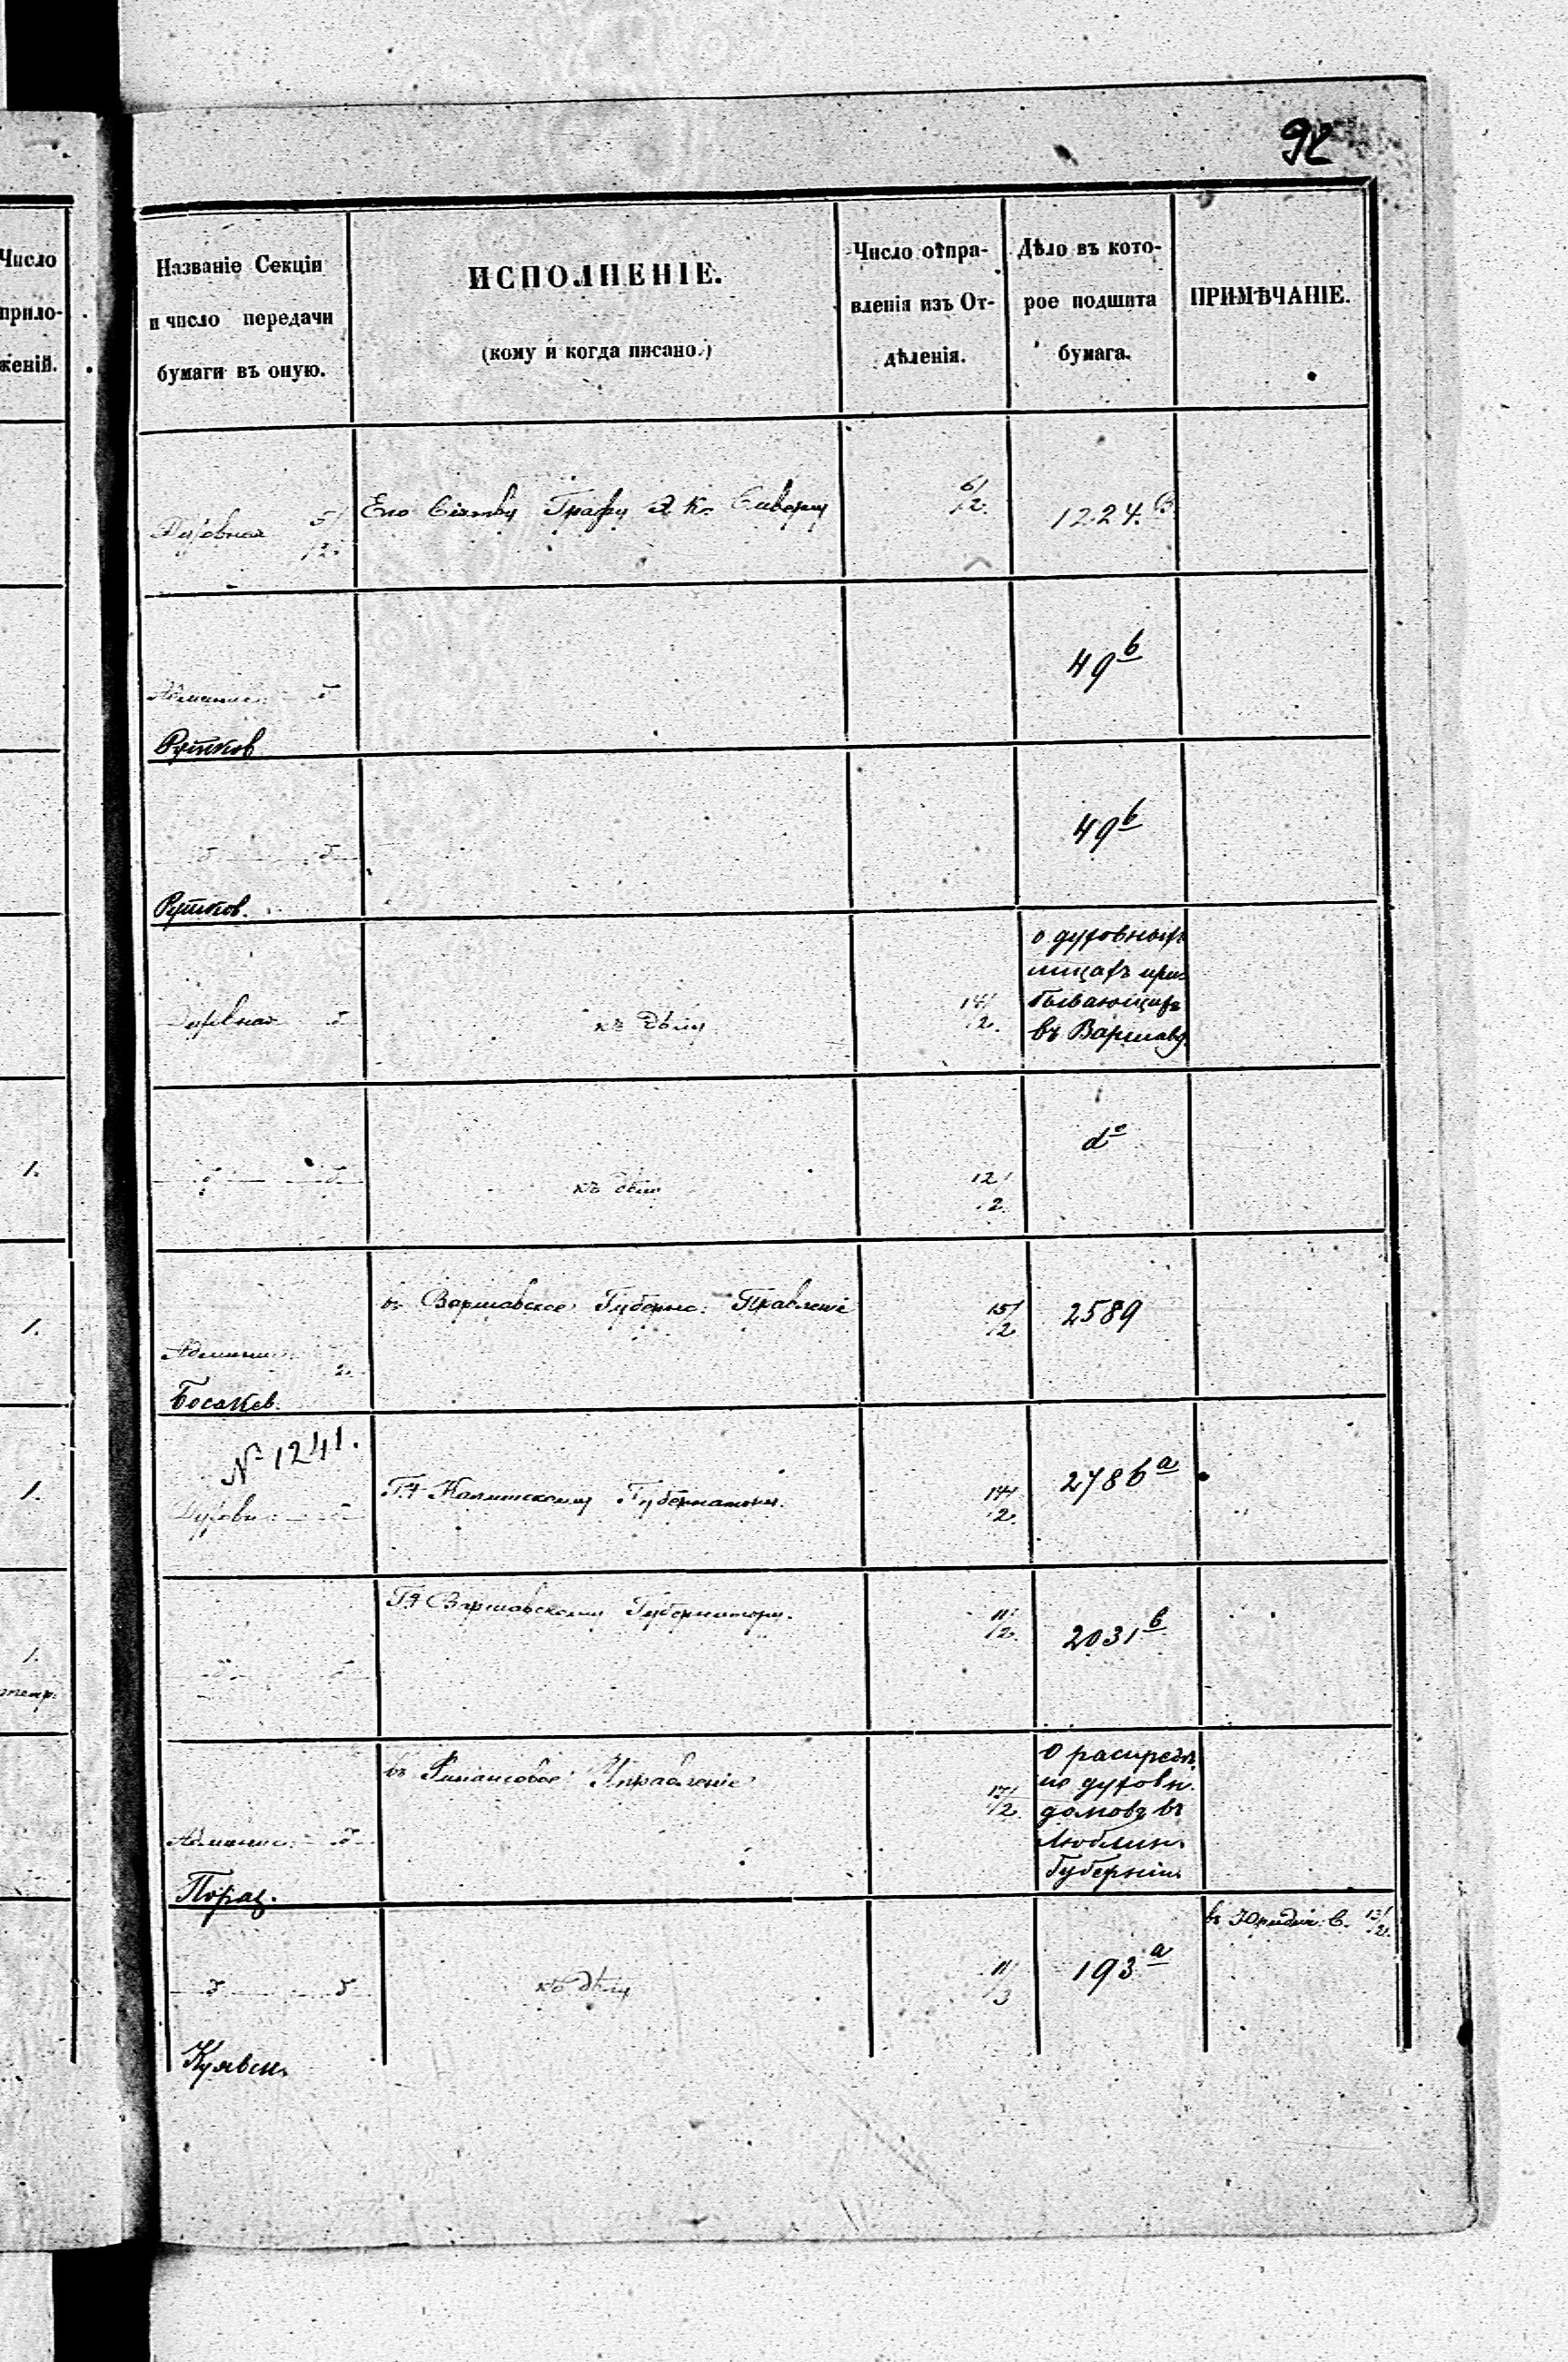 92
Число
прило-
женій.
Названіе Секціи
и число передачи
бумаги въ оную.
ИСПОЛНЕНІЕ.
(кому и когда писано.)
Число отпра-
вленія изъ От-
дѣленія.
Дѣло въ кото-
рое подшита
бумага.
ПРИМѢЧАНІЕ.
Духовная 5/2.
Его Сіятву Графу Э К. Сиверсу
6/2.
1224.B
Админис:
Рутков
49 b
Рутков.
49 b
Духовная
къ дѣлу
14/2.
о духовныхъ
лицахъ при-
бывающихъ
въ Варшаву.
1.
къ дѣлу
12/2.
dº
1.
Админис:
Босакев.
въ Варшавское Губернс: Правленіе
15/2
2589
1.
№ 1241.
Духовн:
Калишскому Губернатору.
14/2.
2786 a
1.
Варшавскому Губернатору.
11/2.
2031 b
Админис:
Пораз.
въ Финансовое Управленіе
17/2.
о распредѣ.
по духовн.
домовъ въ
Люблин.
Губерніи
къ дѣлу
11/3
193 a
въ Юридич. С. 13/2.
Куявск.